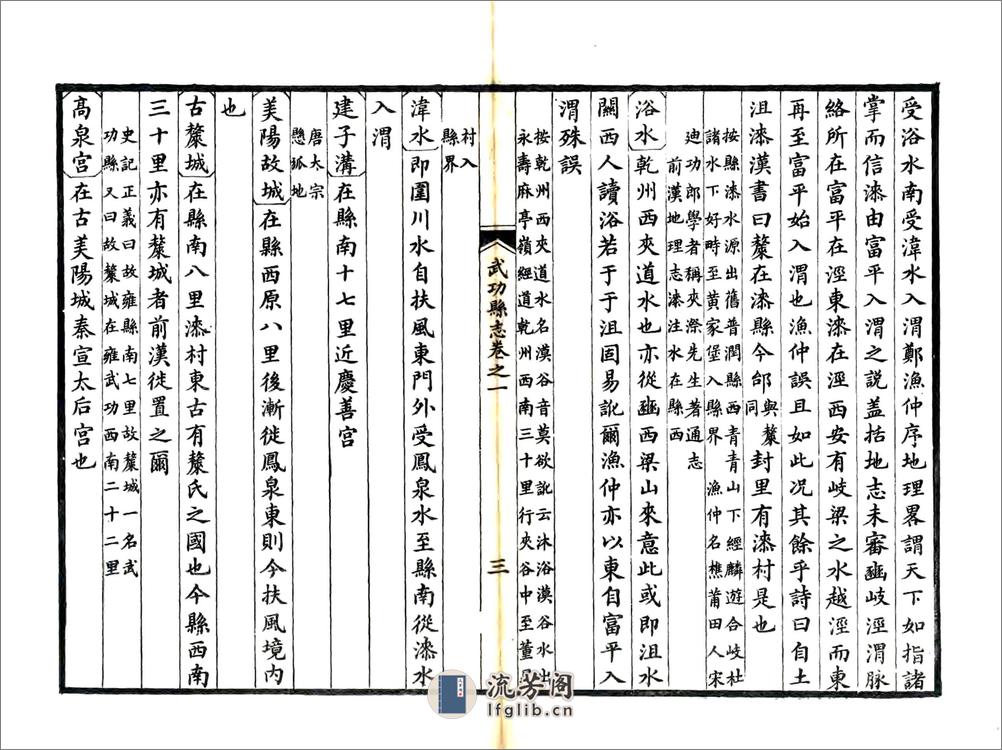 受浴水南受湋水入渭鄭漁仲序地理畧謂天下如指諸
掌而信漆由富平入渭之說蓋括地志未審豳岐涇渭脉
絡所在富平在涇東漆在涇西安有岐梁之水越涇而東
再至富平始入渭也漁仲誤且如此况其餘乎詩曰自土
沮漆漢書曰斄在漆縣今邰與斄同封里有漆村是也
按縣漆水源出舊普潤縣西青青山下經麟遊合岐杜
諸水下好畤至黄家堡入縣界 漁仲名樵莆田人宋
迪功郎學者稱夾漈先生著通志
前漢地理志漆注水在縣西
浴水乾州西夾道水也亦從豳西梁山來意此或即沮水
關西人讀浴若于于沮固易訛爾漁仲亦以東自富平入
渭殊誤
按乾州西夾道水名漠谷音莫欲訛云沐浴漠谷水出
永壽麻亭嶺經道乾州西南三十里行夾谷中至董
村入
縣界
武功縣志卷之一
三
湋水即圍川水自扶風東門外受鳳泉水至縣南從漆水
入渭
建子溝在縣南十七里近慶善宫
唐太宗
懸弧地
美陽故城在縣西原八里後漸徙鳳泉東則今扶風境内
也
古斄城在縣南八里漆村東古有斄氏之國也今縣西南
三十里亦有斄城者前漢徙置之爾
史記正義曰故雍縣南七里故斄城一名武
功縣又曰故斄城在雍武功西南二十二里
高泉宫在古美陽城秦宣太后宫也
流芳阁
lfglib.cn